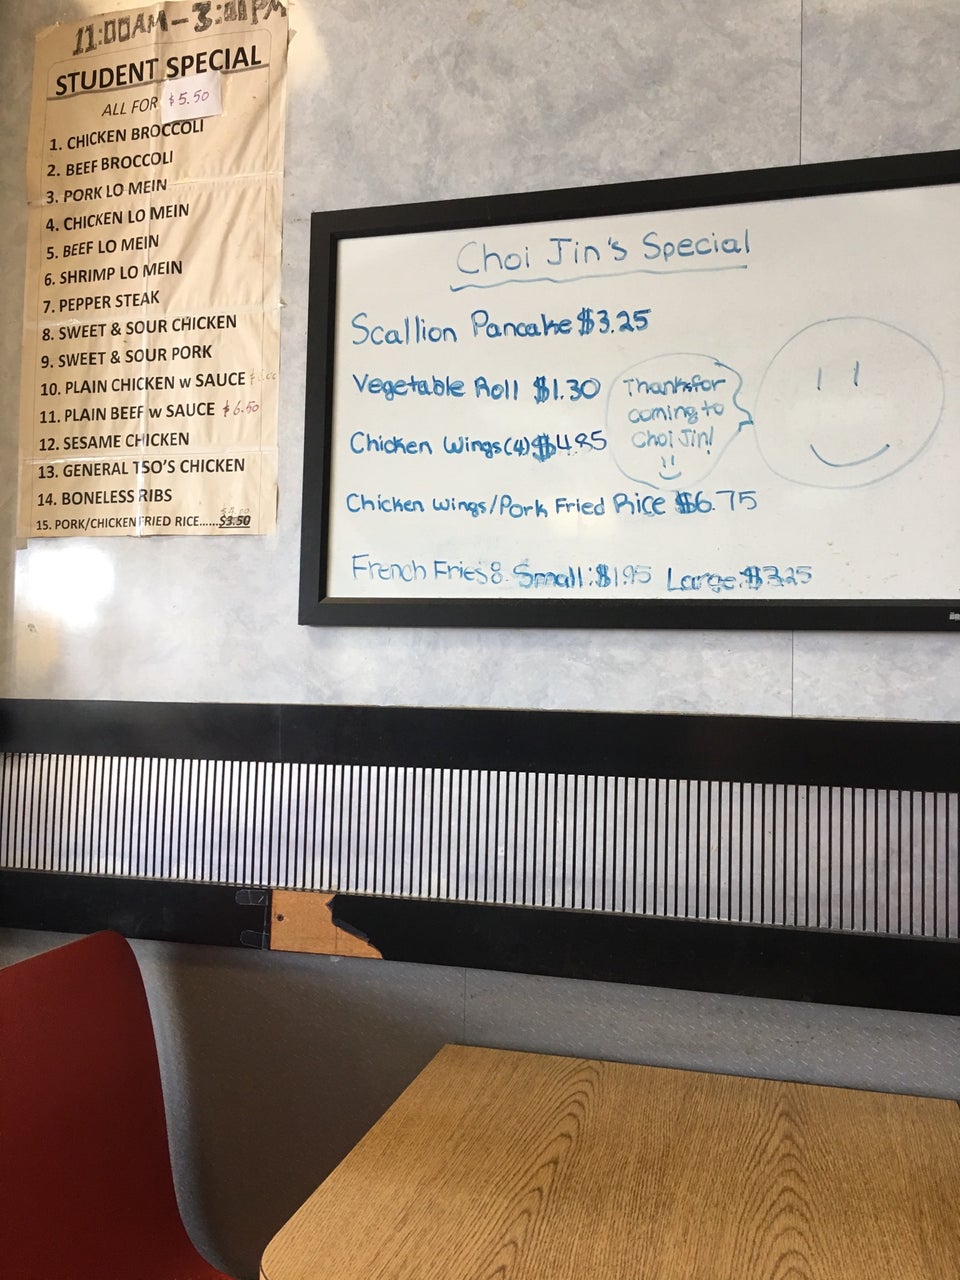 11:00AM-3:00PM
STUDENT SPECIAL
ALL FOR $5.50
1. CHICKEN BROCCOLI
2. BEEF BROCCOLI
3. PORK LO MEIN
4. CHICKEN LO MEIN
5. BEEF LO MEIN
6. SHRIMP LO MEIN
7. PEPPER STEAK
8. SWEET & SOUR CHICKEN
9. SWEET & SOUR PORK
10. PLAIN CHICKEN w SAUCE
11. PLAIN BEEF w SAUCE $6.50
12. SESAME CHICKEN
13. GENERAL TSO'S CHICKEN
14. BONELESS RIBS
15. PORK/CHICKEN FRIED RICE......$3.50
Choi Jin's Special
Scallion Pancake $3.25
Vegetable Roll $1.30
Chicken Wings(4) $4.85
Chicken Wings/Pork Fried Rice $6.75
French Fries: Small: $1.95 Large: $3.25
Thanks for
coming to
Choi Jin!